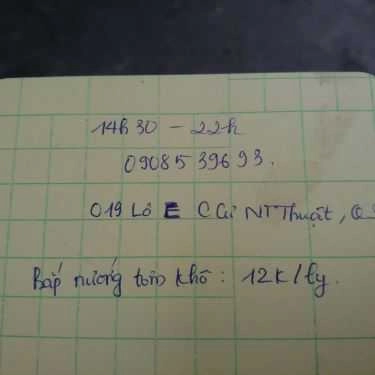 14h30 - 22h
0908539693.
019 Lô E C Cư NT Thuật, Q
Bắp nướng tôm khô : 12K/ly.